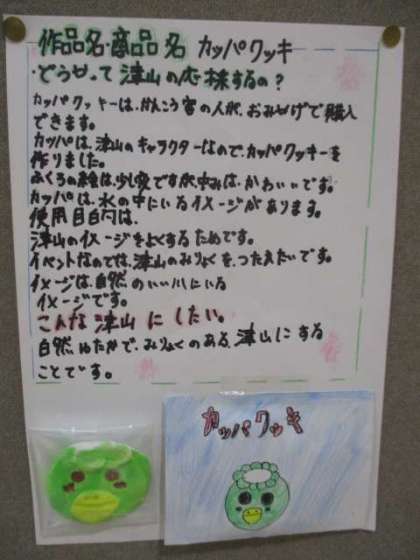 作品名・商品名 カッパクッキ
・どうやって津山の応援するの?
カッパクッキーは、かんこう客の人が、おみやげで購入
できます。
カッパは、津山のキャラクターなので、カッパクッキーを
作りました。
ふくろの絵は、少し変ですが中みは、かわいいです。
カッパは、水の中にいるイメージがあります。
使用目的は、
津山のイメージをよくするためです。
イベントなのでは、津山のみりょくを、つたえたいです。
イメージは、自然のいい川にいる
イメージです。
こんな津山にしたい。
自然ゆたかで、みりょくのある、津山にする
ことです。
カッパクッキ